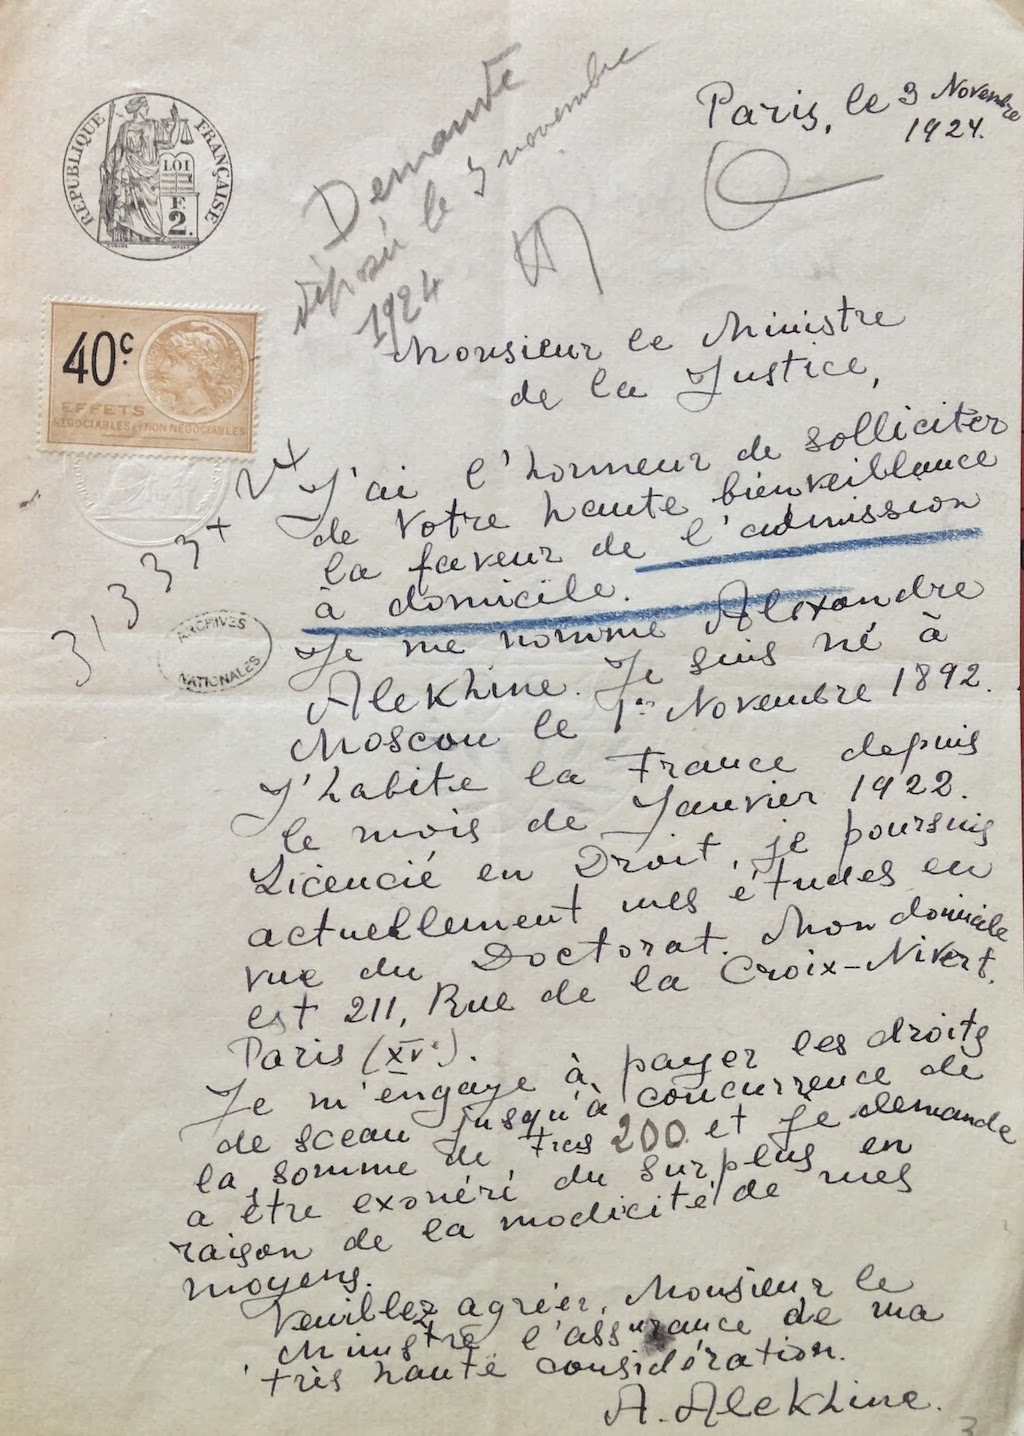 Paris, le 3 Novembre
1924.
RÉPUBLIQUE FRANÇAISE
LOI
F.
2.
Demande
déposée le 3 novembre
1924
40c
EFFETS
NÉGOCIABLES ET NON NÉGOCIABLES
Monsieur le Ministre
de la Justice,
J'ai l'honneur de solliciter
de Votre haute bienveillance
la faveur de l'admission
à domicile.
31333
ARCHIVES
NATIONALES
Je me nomme Alexandre
Alekhine. Je suis né à
Moscou le 1er Novembre 1892.
J'habite la France depuis
le mois de Janvier 1922.
Licencié en Droit, je poursuis
actuellement mes études en
vue du Doctorat. Mon domicile
est 211, Rue de la Croix-Nivert.
Paris (XVe).
Je m'engage à payer les droits
de sceau jusqu'à concurrence de
la somme de frcs 200 et je demande
a être exonéré du surplus en
raison de la modicité de mes
moyens.
Veuillez agréer, Monsieur le
Ministre l'assurance de ma
très haute considération.
A. Alekhine.
3